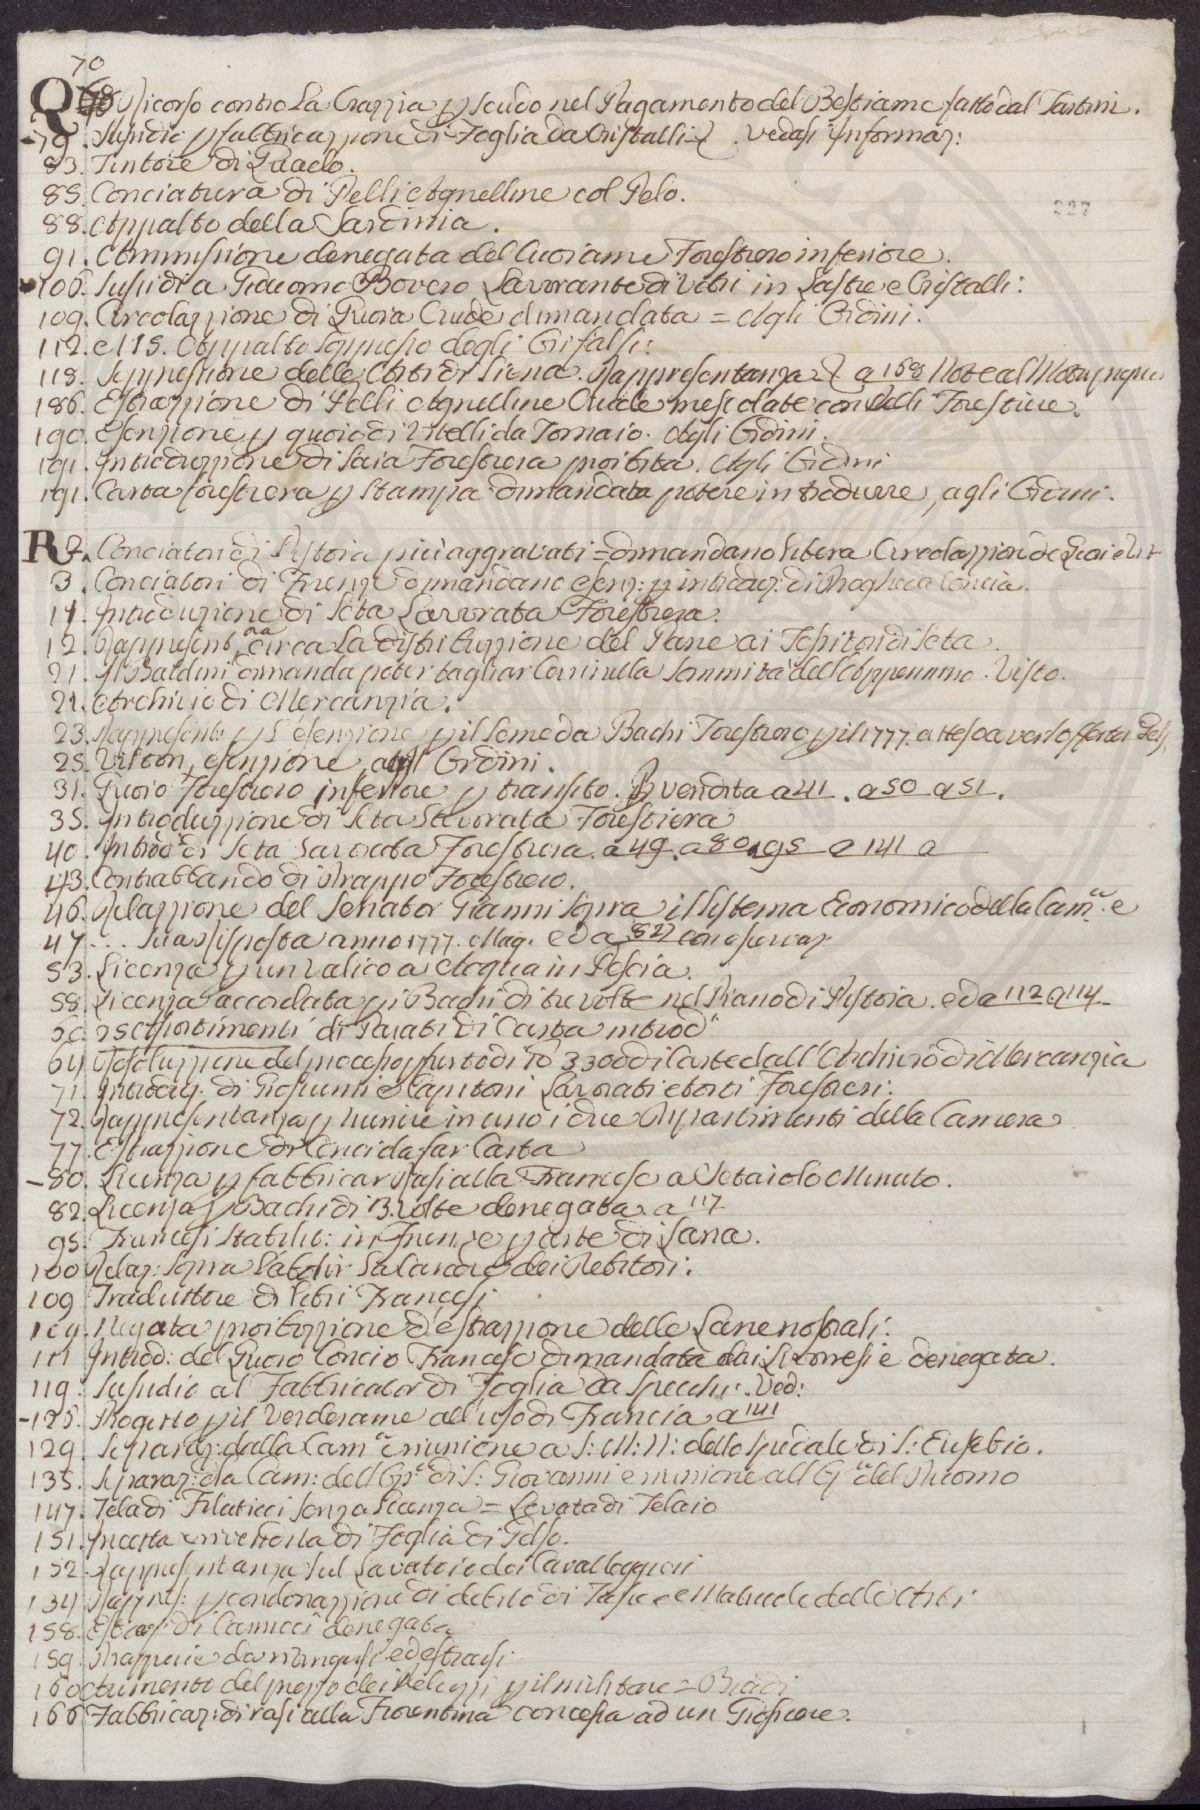 70
Q 78 Ricorso contro La Crazzia p Scudo nel Pagamento del Bestiame fatto dal Tartini.
-79. Sussidio p fabbricazzione di Foglia da Cristalli. vedasi Informaz:
83. Tintore di Guado.
85. Conciatura di Pelli Agnelline col Pelo.
227
88. Appalto della Sardinia.
91. Commissione denegata del Cuoiame Forestiero inferiore.
106. Sussidi a Giacomo Bovero Lavorante di Vetri in Lastre e Cristalli:
109. Circolazzione di Quoia Crude dimandata = Agli Ordini.
112. e 115. Appalto soppresso degli Orpelli:
118. Soppressione delle Corti di Siena. Rappresentanza a 158 Note al Motupropio
186. Estrazzione di Pelli Agnelline Crude mescolate con Pelli Forestiere.
190. Esenzione p quoio di Vitelli da Tomaio. Agli Ordini.
191. Introduzzione di Saia Forestiera proibita. Agli Ordini
191. Carta forestiera p Stampa dimandata potere introdurre, agli Ordini.
R 2. Conciatori di Pistoia più aggravati = dimandano libera Circolazzion de Quoi
3. Conciatori di Firenze domandano esenz: p introduz: di Vacchetta Concia.
11. Introduzione di Seta Lavorata Forestiera.
12. Rappresent.na circa La distribuzzione del Pane ai Tessitori di Seta.
21. Il Baldini dimanda poter tagliar Cerri nella sommità dell'Appennino. Visto.
21. Archivio di Mercanzia.
23. Rappresent: p L'esenzione p il Seme da Bachi Forestiero p il 1777. atteso aver sofferto
25. esenzione, agli Ordini.
31. Quoio Forestiero inferiore p transito. Rivendita a 41. a 50 a 51.
35. Introduzzione di Seta Lavorata Forestiera
40. Introd.e di Seta Lavorata Forestiera. a 49. a 80. 95 a 141 a
43. Contrabbando di Drappo Forestiero.
46. Relazzione del Senator Gianni sopra il Sistema Economico della Cam.ra e
47 ... Sua risposta anno 1777. Mag. ed a 82 con osservaz.
53. Licenza p un Valico a Acqua in Pescia.
58. Licenza accordata p i Bachi di tre volte nel Piano di Pistoia. ed a 112 a 114
assortimenti di Parati di Carta introd.i
64. Assoluzzione del processo p furto di 3300 di Carte dall'Archivio di Mercanzia
71. Introduz. di Grossumi e Capitoni Lavorati e torti Forestieri:
72. Rappresentanza p riunire in uno i due Dipartimenti della Camera
77. Estrazzione di Cenci da far Carta
-80. Licenza p fabbricar Rasi alla Francese a Setaiolo Minuto.
82. Licenza p Bachi di 3 Volte denegata. a 117
95. Francesi stabilit: in Firenze p arte di Lana.
100 Relaz: sopra L'abolir La Carcere dei Debitori.
109 Traduttore di Libri Francesi
109. Negata proibizzione d'estrazzione delle Lane nostrali:
111 Introd: del Quoio Concio Francese dimandata dai Livornesi e denegata.
119. Sussidio al Fabbricator di Foglia da specchi. Ved:
-125. Progetto p il Verderame all'uso di Francia a 141
129. Separaz: dalla Cam.ra e riunione a S: M: N: dello spedale di S: Eusebio.
135. Separaz: da Cam: dell'Op.ra di S: Giovanni e riunione all'Op.ra del Duomo
147. Tela di Filaticci senza Licenza = Levata di Telaio
151. Incetta e rivendita di Foglia di Gelso.
152. Rappresentanza sul Lavatoio dei Cavalleggieri
154 Rappres: p condonazzione di debito di Tasse e Matricole delle Arti
158. Estraz: di Canucci denegata
159. Drapperie da ed estrarsi
160 Aumento del prezzo dei p il militare = Biadi
166 Fabbricaz: di rasi alla Fiorentina concessa ad un